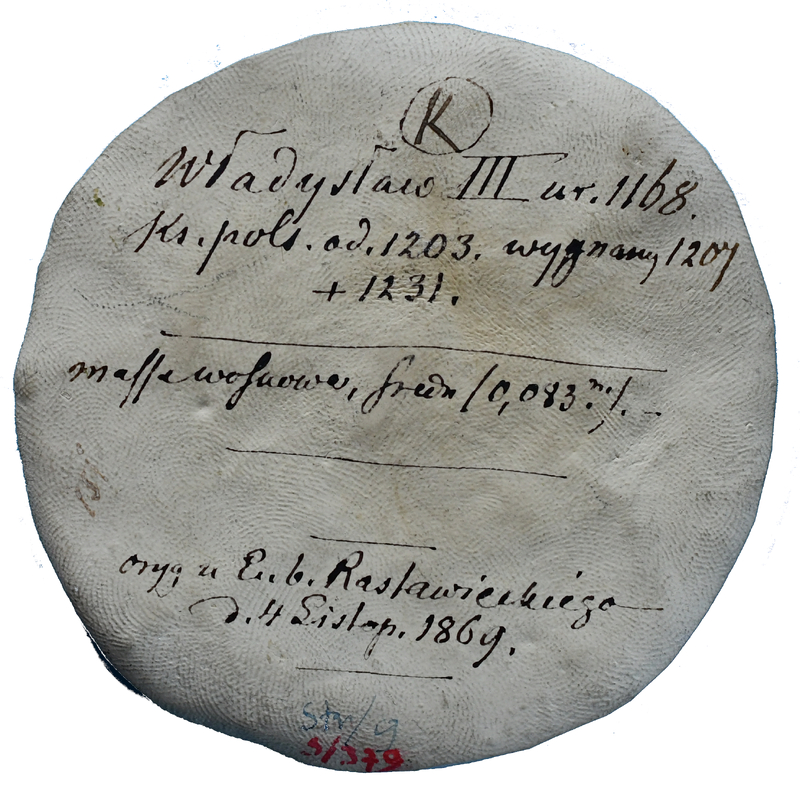 K
Władysław III ur. 1168.
Ks. pols. od. 1203. wygnany 1207
+ 1231.
massa woskowa, średn (0,083 m.).
oryg u Ed. b. Rastawieckiego
d. 4 Listop. 1869.
S/379